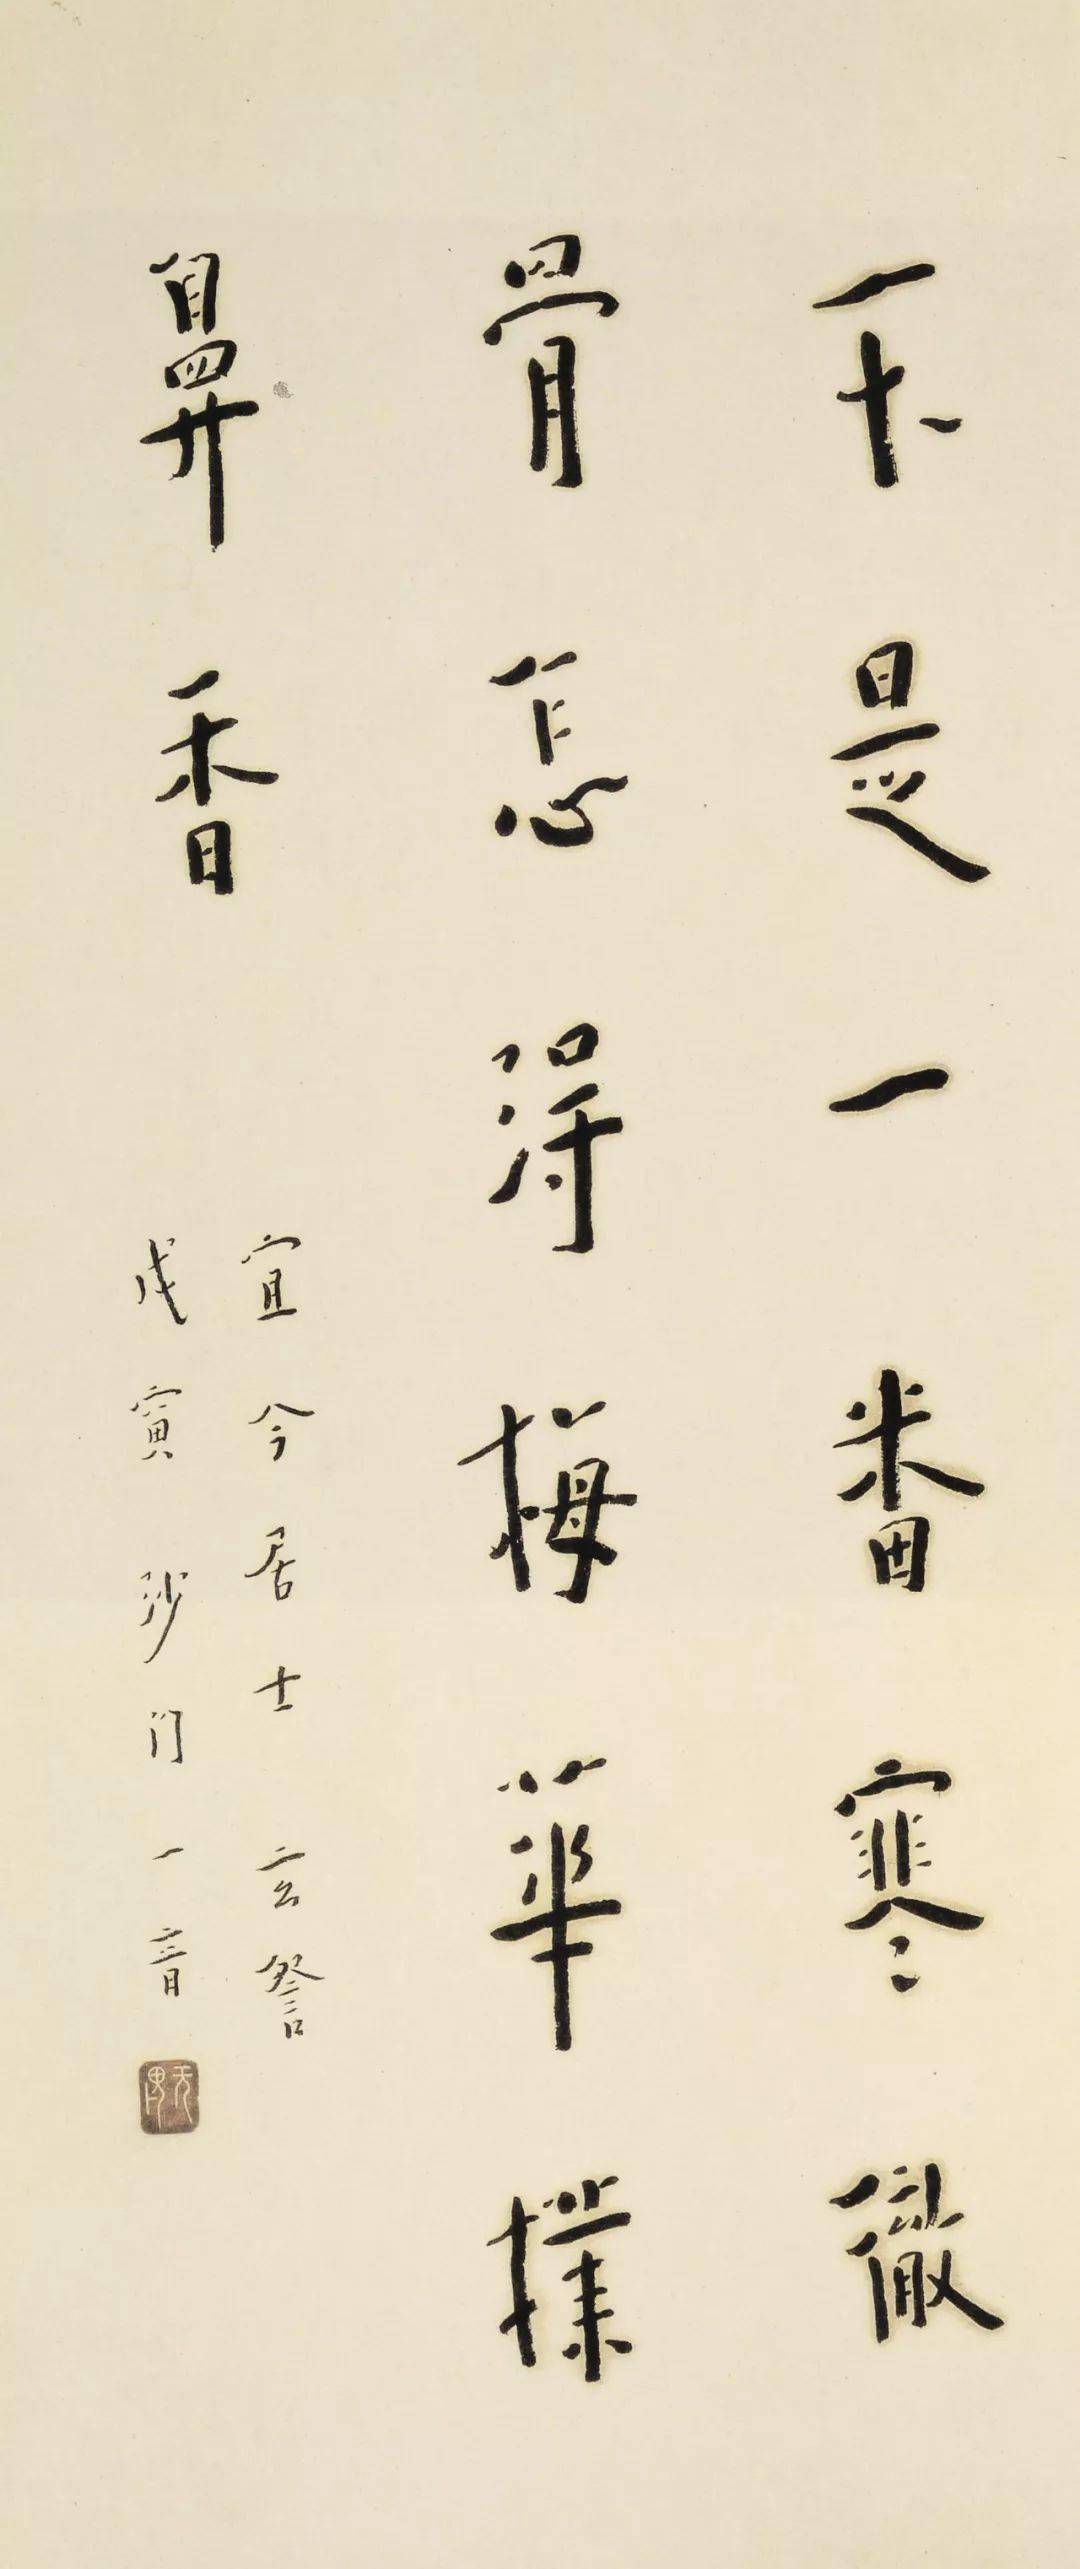 不是一番寒徹
骨怎得梅華撲
鼻香
宜今居士 玄詧
戊寅 沙门一音